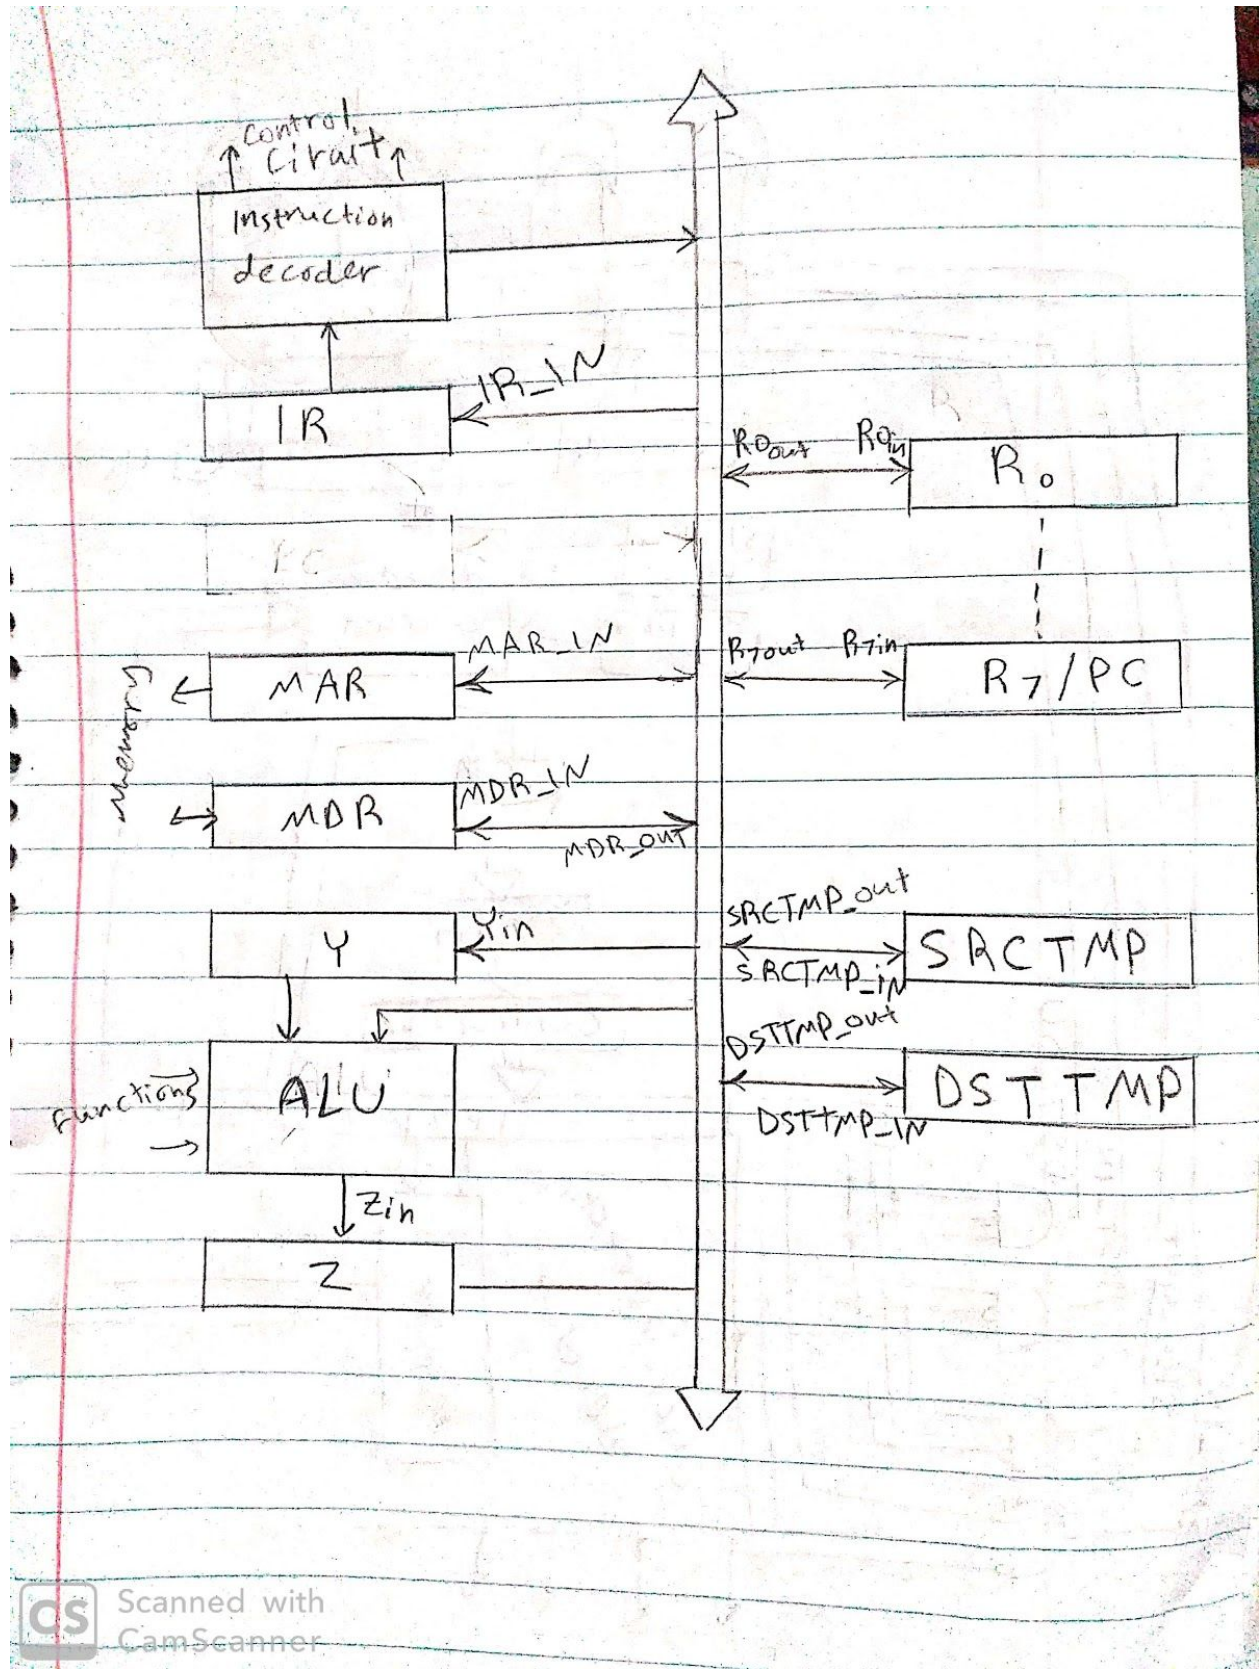 control
Ciruit
Instruction
decoder
IR_IN
IR
R0out R0in
R0
PC
MAR_IN
MAR
R7out R7in
R7/PC
Memory
MDR_IN
MDR
MDR_out
SRCTMP_out
Yin
Y
SRCTMP
SRCTMP_iN
DSTTMP_out
ALU
DSTTMP
Functions
DSTTMP_IN
Zin
Z
CS
Scanned with
CamScanner